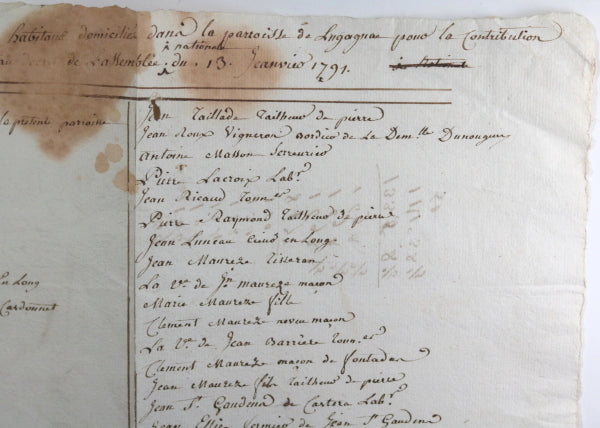 habitans domiciliés dans la parroisse de Lugagnac pour la Contribution
nationale
de L'assemblée du 13 Janvier 1791.
la presente parroisse
Jean Taillade Tailheur de pierre
Jean Roux Vigneron Bordier de La Dem.lle Dunouguey
Antoine Masson Serrurier
Pierre Lacroix Lab.r
Jean Ricaud Tonn.er
Pierre Raymond Tailheur de pierre
Jean Luneau en Long
Jean Maureze Tisseran
La v.ve de J.n maureze maçon
Marie Maureze fille
en Long
Clement Maureze neveu maçon
Cardonnet
La v.ve de Jean Barrière Tonn.er
Clement Maureze maçon de
Jean Maureze fils Tailheur de pierre
Jean S.t Gaudens de Cartera Lab.r
Jean Ellie de Jean S.t Gaudens